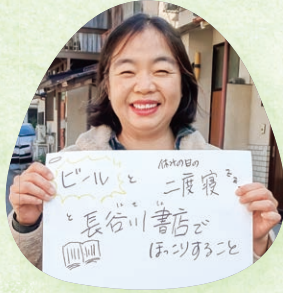 ビールと 休みの日の二度寝
と長谷川書店で
ほっこりすること